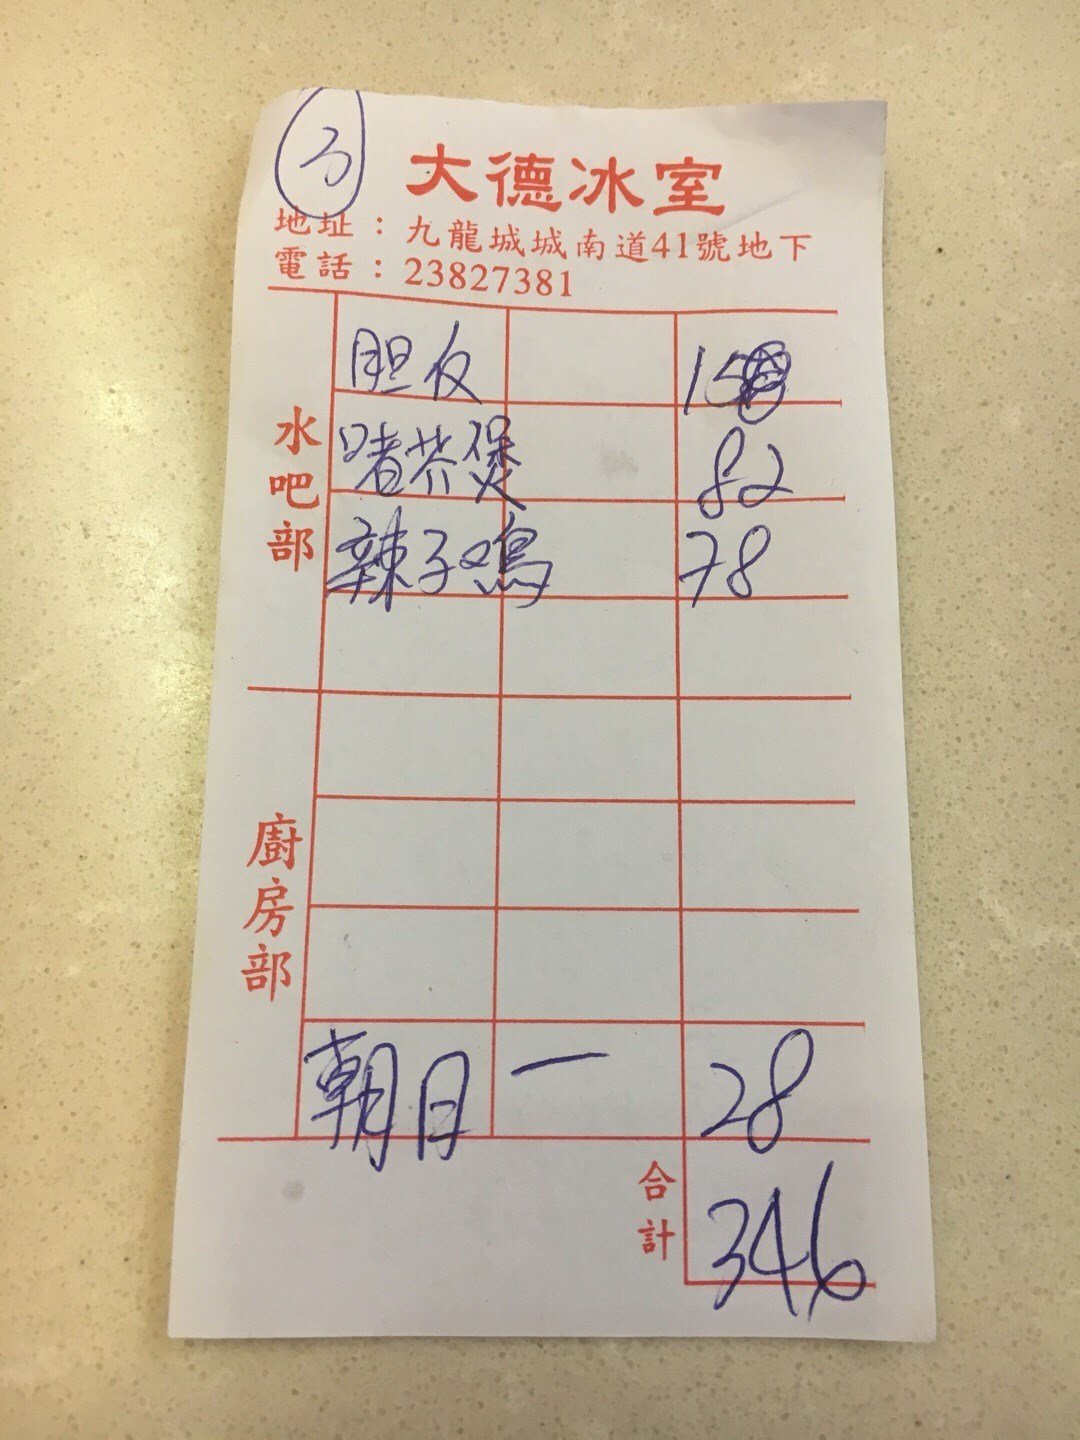 3
大德冰室
地址：九龍城城南道41號地下
電話：23827381
水吧部
胆反 158
啫芥煲 82
辣子鸡 78
廚房部
朝日 一 28
合計 346